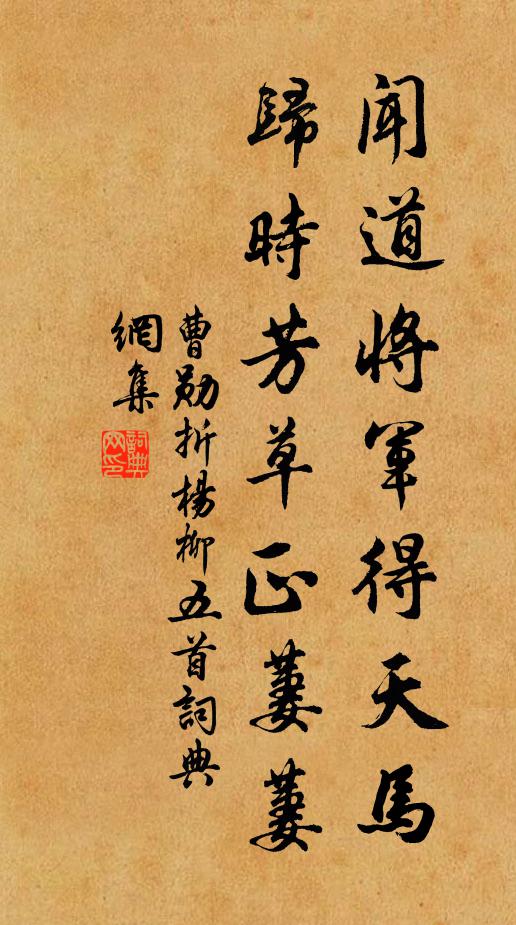 聞道將軍得天馬
歸時芳草正萋萋
曹勛折楊柳五首詞典
網集
詞典
网印